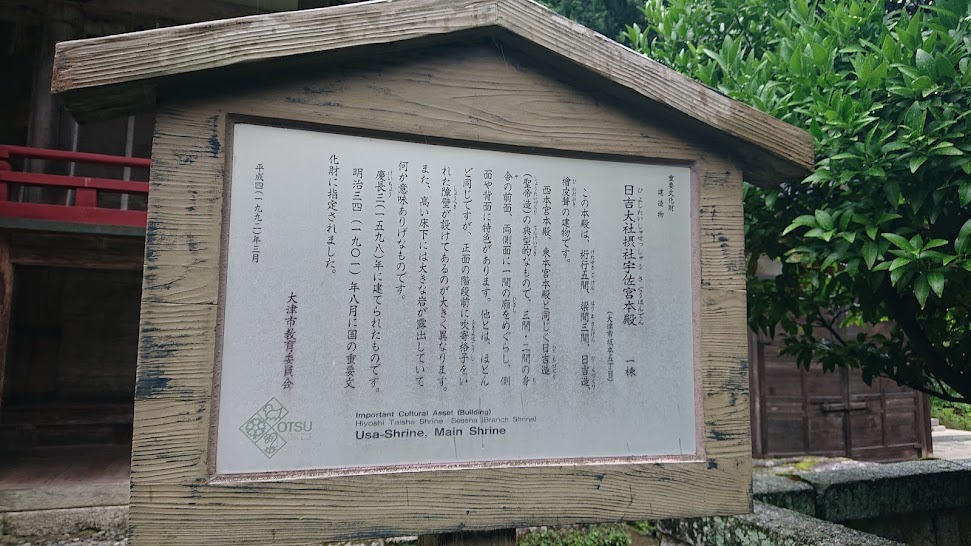 重要文化財
建造物
日吉大社摂社宇佐宮本殿 一棟
(大津市坂本五丁目)
この本殿は、桁行五間、梁間三間、日吉造、
檜皮葺の建物です。
西本宮本殿、東本宮本殿と同じく日吉造
(聖帝造)の典型的なもので、三間・二間の身
舎の前面、両側面に一間の廂をめぐらし、側
面や背面に特色があります。他とは、ほとん
ど同じですが、正面の階段前に吹寄格子をい
れた障壁が設けてあるのが大きく異なります。
また、高い床下には大きな岩が露出していて
何か意味ありげなものです。
慶長三(一五九八)年に建てられたものです。
明治三四(一九〇一)年八月に国の重要文
化財に指定されました。
大津市教育委員会
平成四(一九九二)年三月
Important Cultural Asset (Building)
Hiyoshi Taisha Shrine Sessha (Branch Shrine)
Usa-Shrine, Main Shrine
OTSU